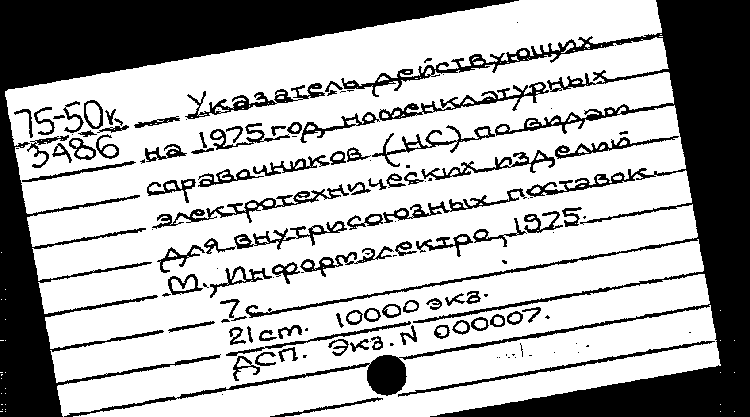 75-50к Указатель действующих
3486 на 1975 год номенклатурных
справочников (НС) по видам
электротехнических изделий
для внутрисоюзных поставок.
М., Информэлектро, 1975.
7с.
21 см. 10000 экз.
ДСП. Экз. N 000007.